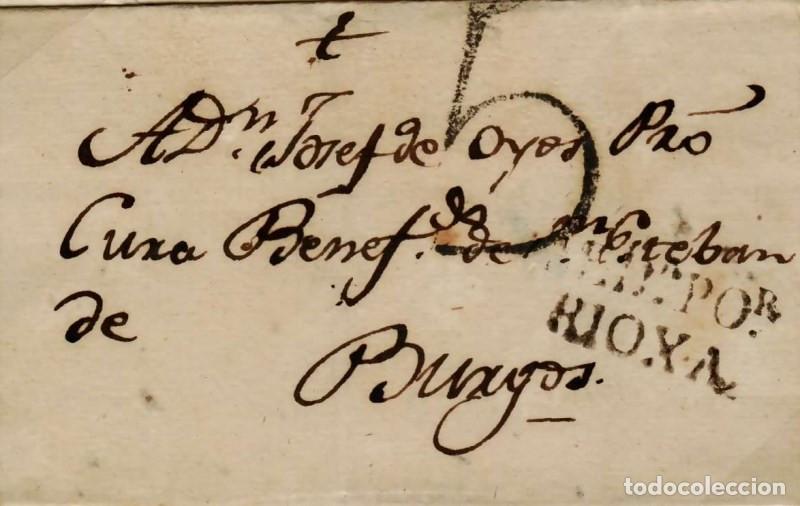 t
5
A Dn. Josef de Oyos Pro
Cura Benef.do de Sn Esteban
de
Burgos.
POR
RIOXA
todocoleccion